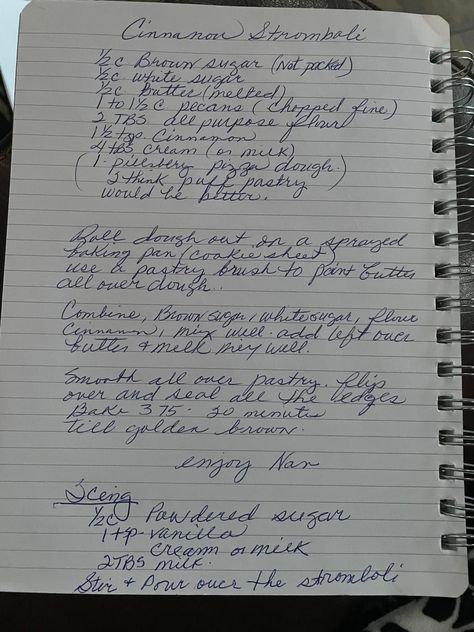 Cinnamon Stromboli
1/2 c Brown sugar (Not packed)
1/2 c white sugar
1/2 c butter (melted)
1 to 1 1/2 c pecans (chopped fine)
2 TBS all purpose flour
1 1/2 tsp. Cinnamon
4 TBS cream (or milk)
(1 - pillsbery pizza dough.
I think puff pastry
would be better.)
Roll dough out on a sprayed
baking pan (cookie sheet)
use a pastry brush to paint butter
all over dough.
Combine, Brown sugar, white sugar, flour
cinnamon, mix well. add left over
butter + milk mix well.
Smooth all over pastry. flip
over and seal all the edges
Bake 375 - 20 minutes
till golden brown.
enjoy Nan
Icing
1/2 c Powdered sugar
1 tsp vanilla
cream or milk
2 TBS milk.
Stir + Pour over the stromboli